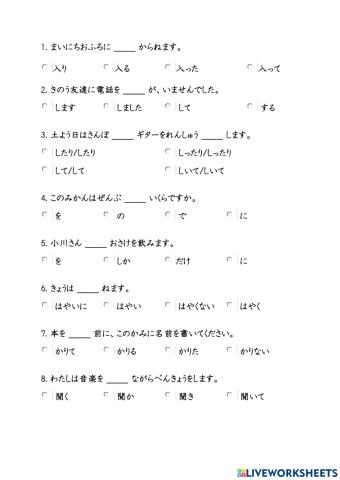 1. まいにちおふろに _____ からねます。
入り 入る 入った 入って
2. きのう友達に電話を _____ が、いませんでした。
します しました して する
3. 土よう日はさんぽ _____ ギターをれんしゅう _____ します。
したり/したり しったり/しったり
して/して しいて/しいて
4. このみかんはぜんぶ _____ いくらですか。
を の で に
5. 小川さん _____ おさけを飲みます。
を しか だけ に
6. きょうは _____ ねます。
はやいに はやい はやくない はやく
7. 本を _____ 前に、このかみに名前を書いてください。
かりて かりる かりた かりない
8. わたしは音楽を _____ ながらべんきょうをします。
聞く 聞か 聞き 聞いて
LIVEWORKSHEETS